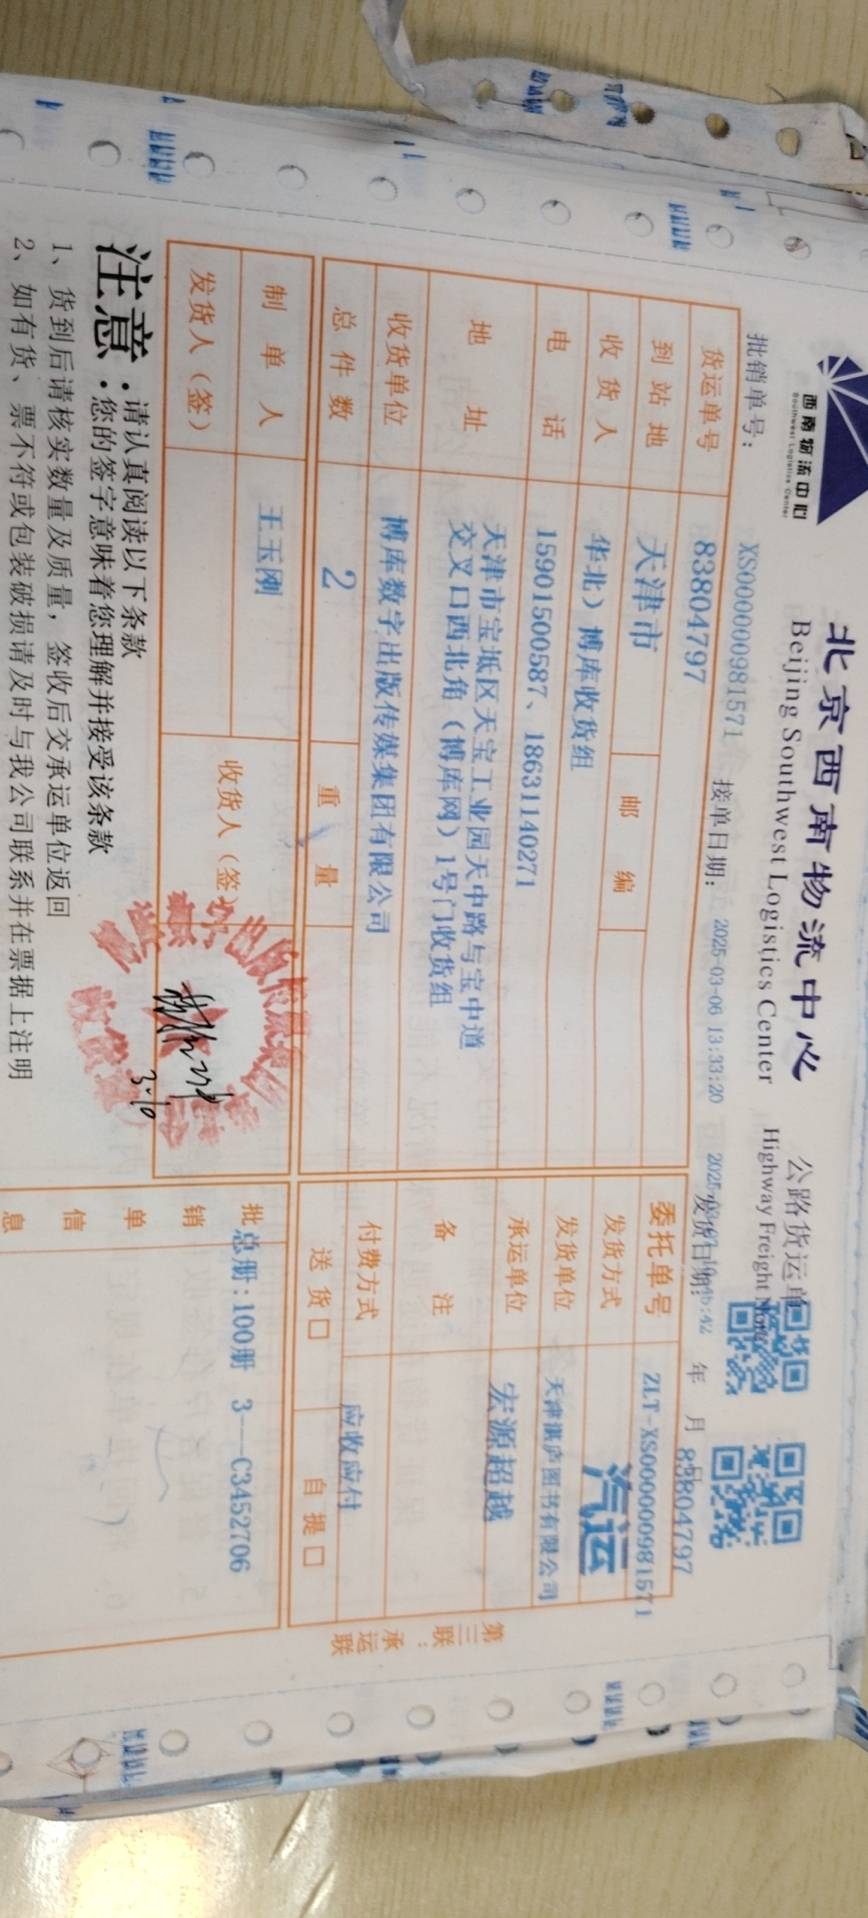 西南物流中心
Southwest Logistics Center
北京西南物流中心
Beijing Southwest Logistics Center
公路货运单
Highway Freight
批销单号：
XS000000981571
接单日期：
2025-03-06 13:33:20
发货日期：
年 月
83804797
货运单号 83804797
委托单号 ZLT-XS000000981571
到站地 天津市 邮编
发货方式 汽运
收货人 华北）博库收货组
发货单位 天津湛庐图书有限公司
电话 15901500587、18631140271
承运单位 宏源超越
地址 天津市宝坻区天宝工业园天中路与宝中道
交叉口西北角（博库网）1号门收货组
备注
收货单位 博库数字出版传媒集团有限公司
付费方式 应收应付
总件数 2 重量
送货□ 自提□
制单人 王玉刚
收货人（签）
发货人（签）
3.10
批销单信息
总册：100册 3--C3452706
第三联：承运联
注意：请认真阅读以下条款
您的签字意味着您理解并接受该条款
1、货到后请核实数量及质量，签收后交承运单位返回
2、如有货、票不符或包装破损请及时与我公司联系并在票据上注明